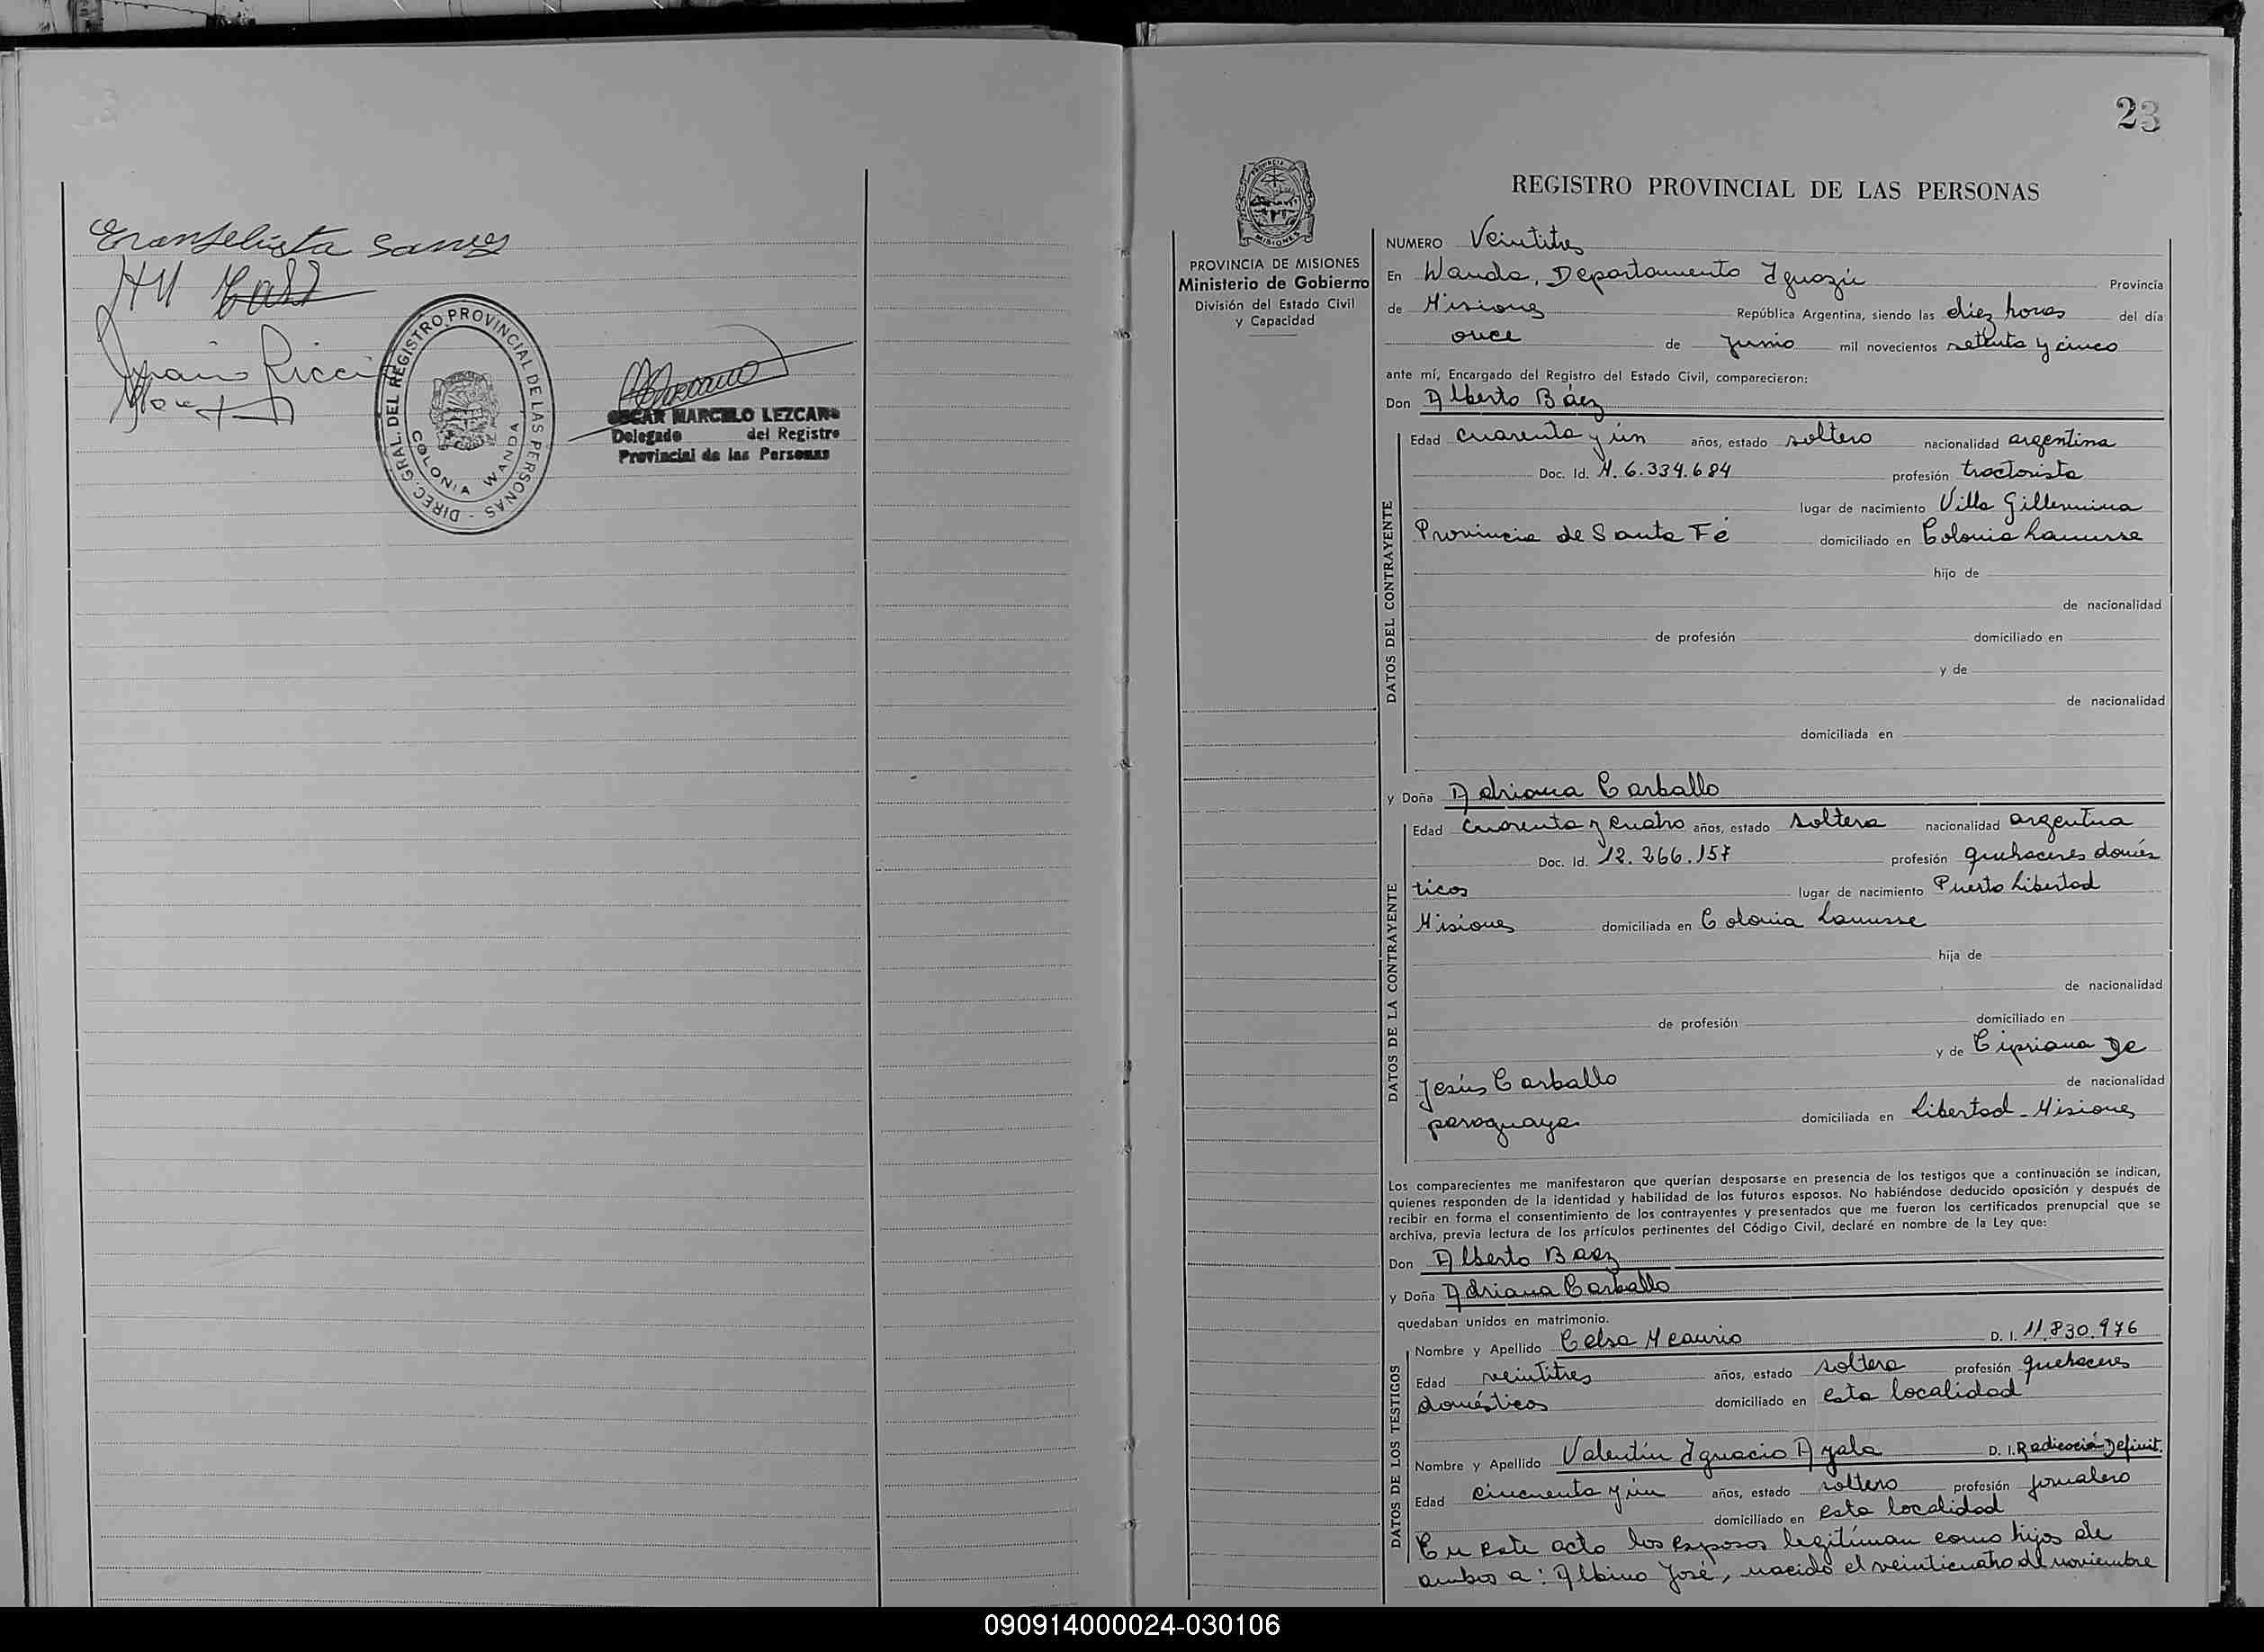 Evangelista
DIREC. GRAL. DEL REGISTRO PROVINCIAL DE LAS PERSONAS -
COLONIA WANDA
OSCAR MARCELO LEZCANO
Delegado del Registro
Provincial de las Personas
23
PROVINCIA DE MISIONES
Ministerio de Gobierno
División del Estado Civil
y Capacidad
REGISTRO PROVINCIAL DE LAS PERSONAS
NUMERO Veintitres
En Wanda, Departamento Iguazú Provincia
de Misiones República Argentina, siendo las diez horas del día
once de Junio mil novecientos setenta y cinco
ante mí, Encargado del Registro del Estado Civil, comparecieron:
Don Alberto Báez
DATOS DEL CONTRAYENTE
Edad cuarenta y ún años, estado soltero nacionalidad argentina
Doc. Id. M. 6.334.684 profesión tractorista
lugar de nacimiento Villa Gillermina
Provincia de Santa Fé domiciliado en Colonia Lanusse
hijo de
de nacionalidad
de profesión domiciliado en
y de
de nacionalidad
domiciliada en
y Doña Adriana Carballo
DATOS DE LA CONTRAYENTE
Edad cuarenta y cuatro años, estado soltera nacionalidad argentina
Doc. Id. 12.266.157 profesión quehaceres domés
ticos lugar de nacimiento Puerto Libertad
Misiones domiciliada en Colonia Lanusse
hija de
de nacionalidad
de profesión domiciliado en
y de Cipriana De
Jesús Carballo de nacionalidad
paraguaya domiciliada en Libertad - Misiones
Los comparecientes me manifestaron que querían desposarse en presencia de los testigos que a continuación se indican,
quienes responden de la identidad y habilidad de los futuros esposos. No habiéndose deducido oposición y después de
recibir en forma el consentimiento de los contrayentes y presentados que me fueron los certificados prenupcial que se
archiva, previa lectura de los artículos pertinentes del Código Civil, declaré en nombre de la Ley que:
Don Alberto Baez
y Doña Adriana Carballo
quedaban unidos en matrimonio.
DATOS DE LOS TESTIGOS
Nombre y Apellido Celsa D. I. 11.830.976
Edad veintitres años, estado soltera profesión quehaceres
domésticos domiciliado en esta localidad
Nombre y Apellido Valentín Ignacio Ayala D. I. Radicación Definit.
Edad cincuenta y ún años, estado soltero profesión jornalero
domiciliado en esta localidad
En este acto los esposos legitíman como hijos de
ambos a: Albino José, nacido el veinticuatro de noviembre
090914000024-030106